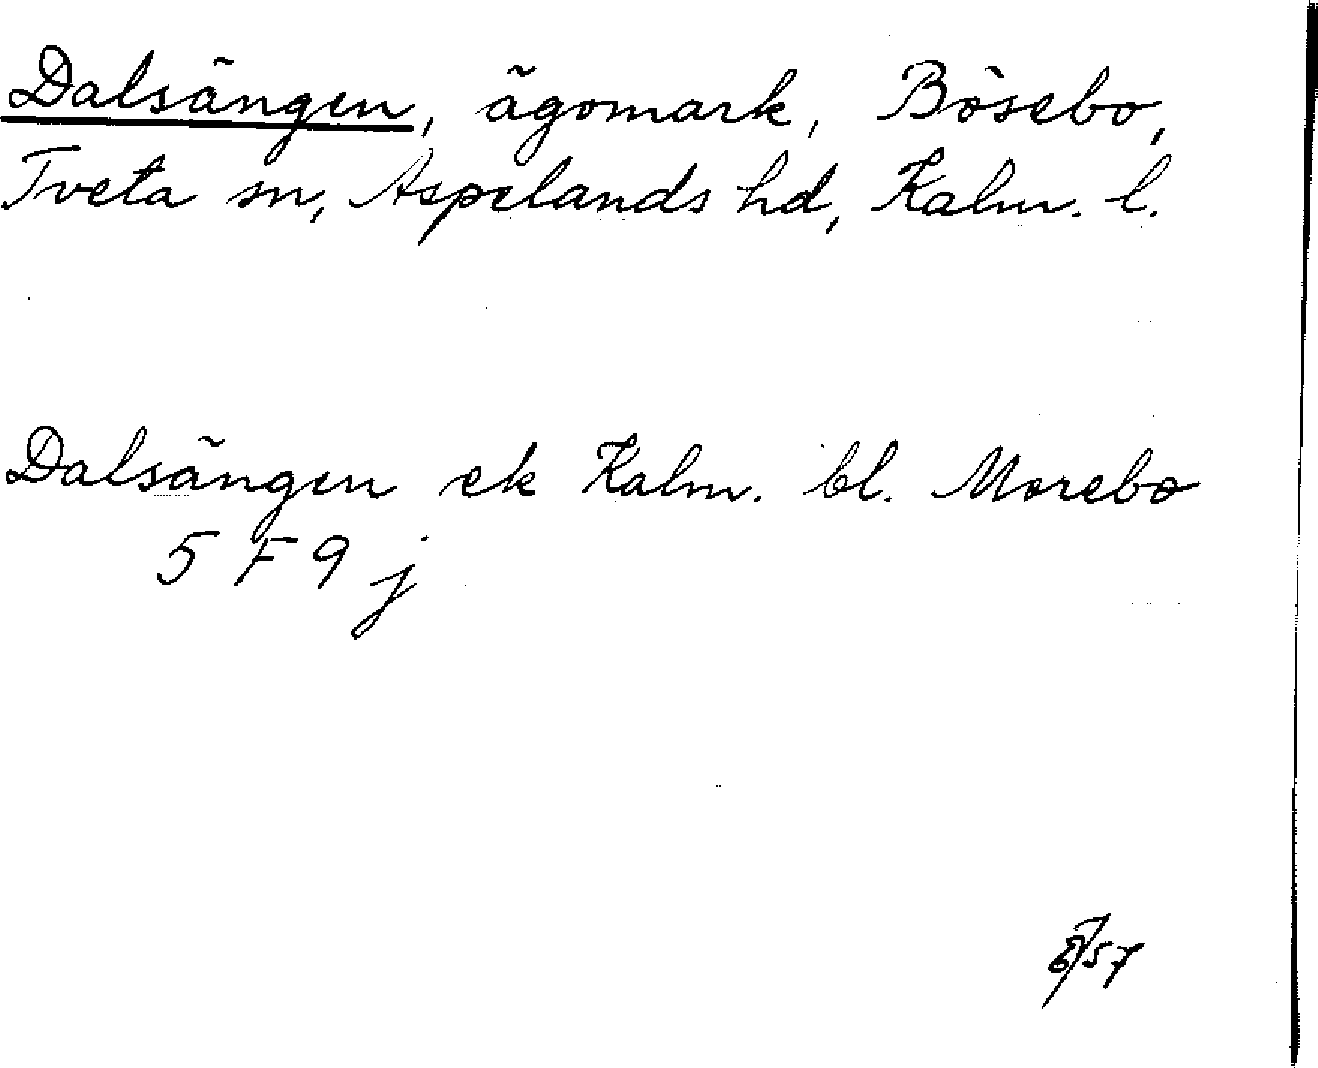 Dalsängen, ägomark, Bösebo,
Tveta sn, Aspelands hd, Kalm. l.
Dalsängen ek Kalm. bl. Morebo
5 F 9 j